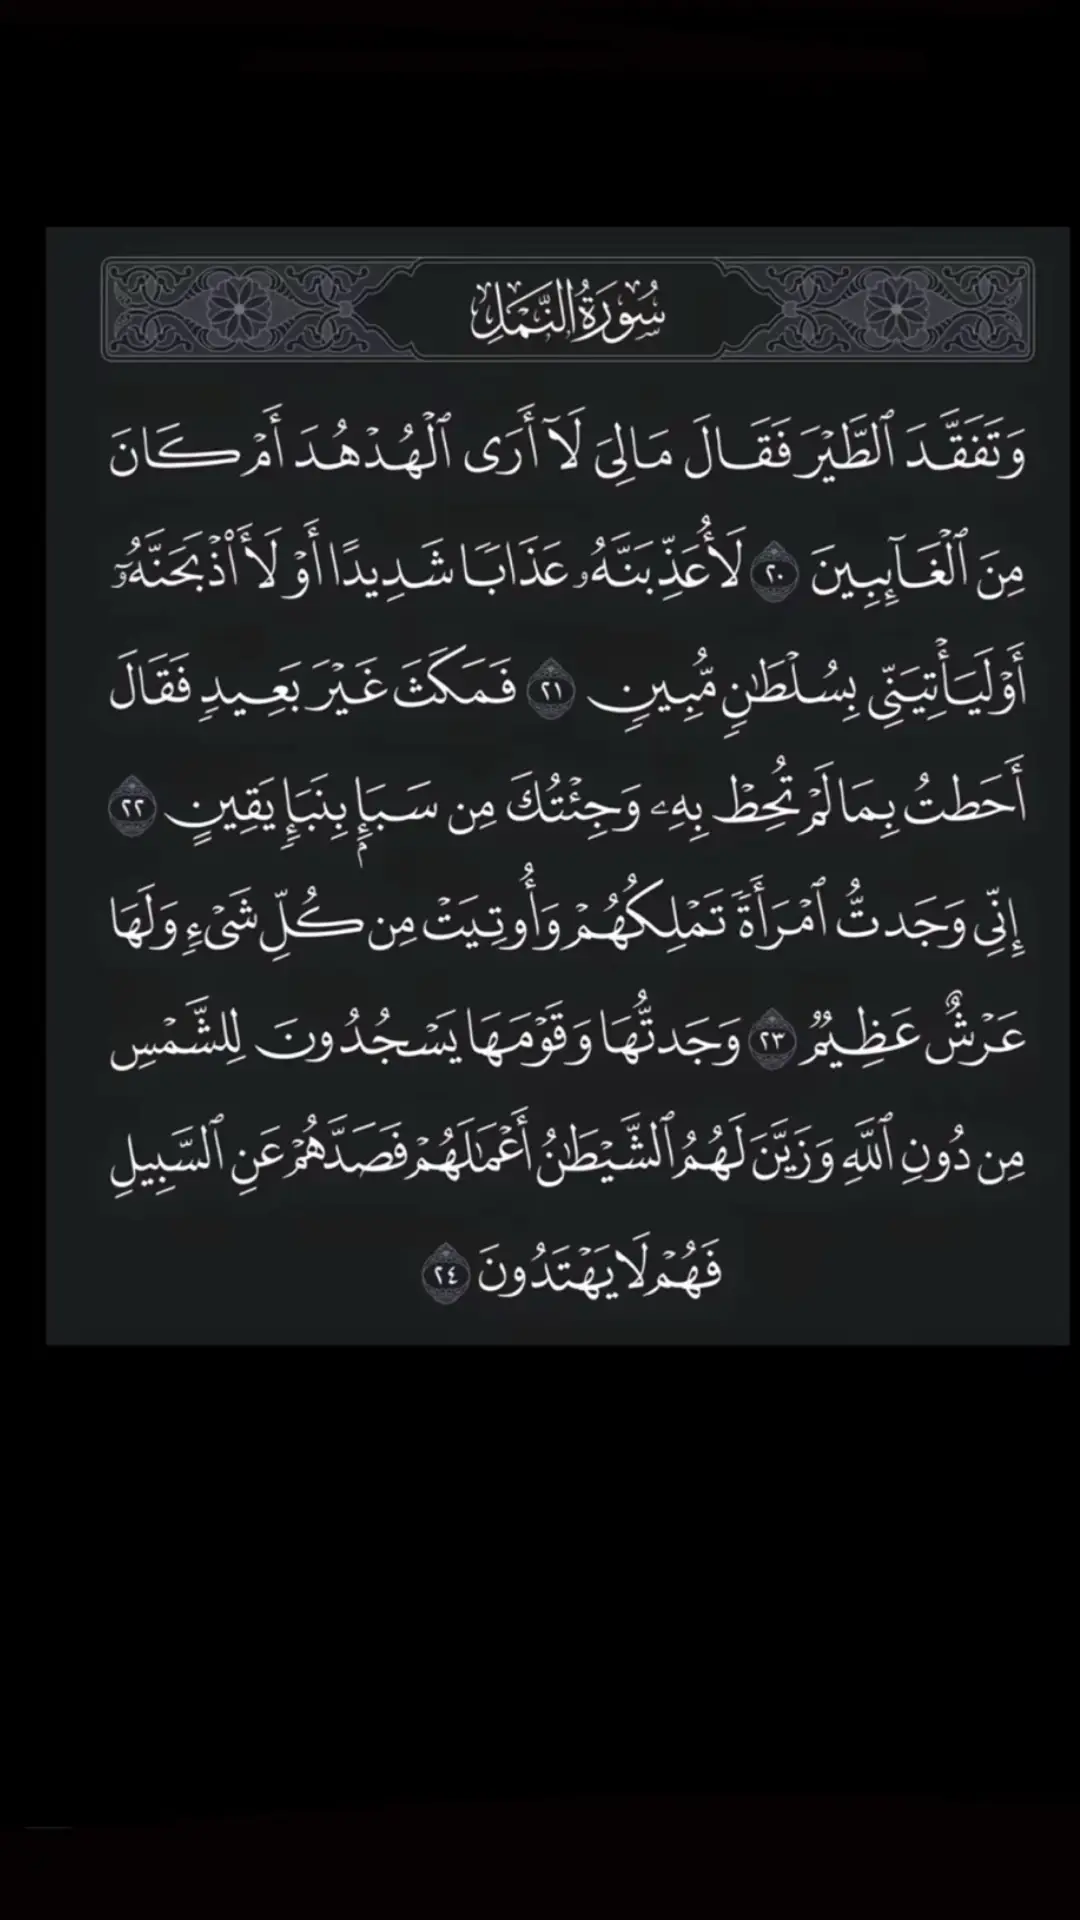 سُورَةُ النَّمْلِ
وَتَفَقَّدَ ٱلطَّيْرَ فَقَالَ مَالِىَ لَآ أَرَى ٱلْهُدْهُدَ أَمْ كَانَ
مِنَ ٱلْغَآئِبِينَ ٢٠ لَأُعَذِّبَنَّهُۥ عَذَابًا شَدِيدًا أَوْ لَأَا۟ذْبَحَنَّهُۥٓ
أَوْ لَيَأْتِيَنِّى بِسُلْطَٰنٍ مُّبِينٍ ٢١ فَمَكَثَ غَيْرَ بَعِيدٍ فَقَالَ
أَحَطتُ بِمَا لَمْ تُحِطْ بِهِۦ وَجِئْتُكَ مِن سَبَإٍۭ بِنَبَإٍ يَقِينٍ ٢٢
إِنِّى وَجَدتُّ ٱمْرَأَةً تَمْلِكُهُمْ وَأُوتِيَتْ مِن كُلِّ شَىْءٍ وَلَهَا
عَرْشٌ عَظِيمٌ ٢٣ وَجَدتُّهَا وَقَوْمَهَا يَسْجُدُونَ لِلشَّمْسِ
مِن دُونِ ٱللَّهِ وَزَيَّنَ لَهُمُ ٱلشَّيْطَٰنُ أَعْمَٰلَهُمْ فَصَدَّهُمْ عَنِ ٱلسَّبِيلِ
فَهُمْ لَا يَهْتَدُونَ ٢٤